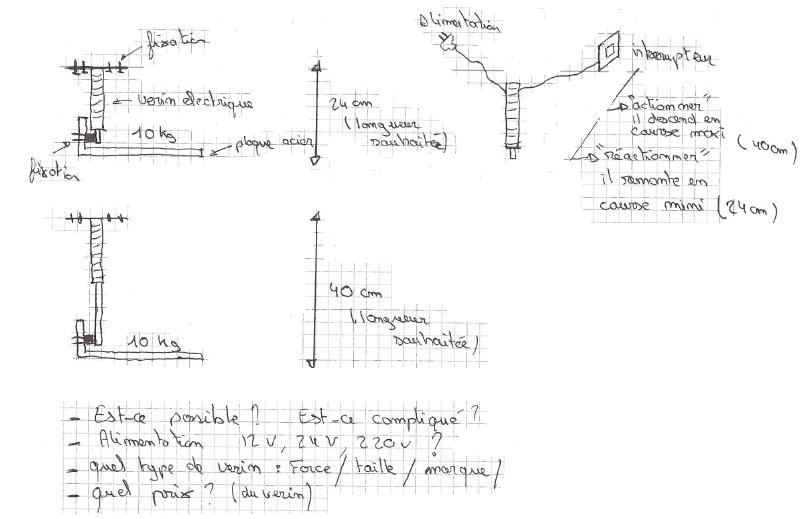 fixation
verin electrique
10 kg
plaque acier
fixation
24 cm
(longueur
souhaitée)
alimentation
interrupteur
"actionner"
il descend en
course maxi (40cm)
"réactionner"
il remonte en
course mimi (24cm)
10 kg
40 cm
(longueur
souhaitée)
- Est-ce possible ? Est-ce compliqué ?
- Alimentation 12 V, 24 V, 220 v ?
- quel type de verin : Force / taille / marque /
- quel prix ? (du verin)